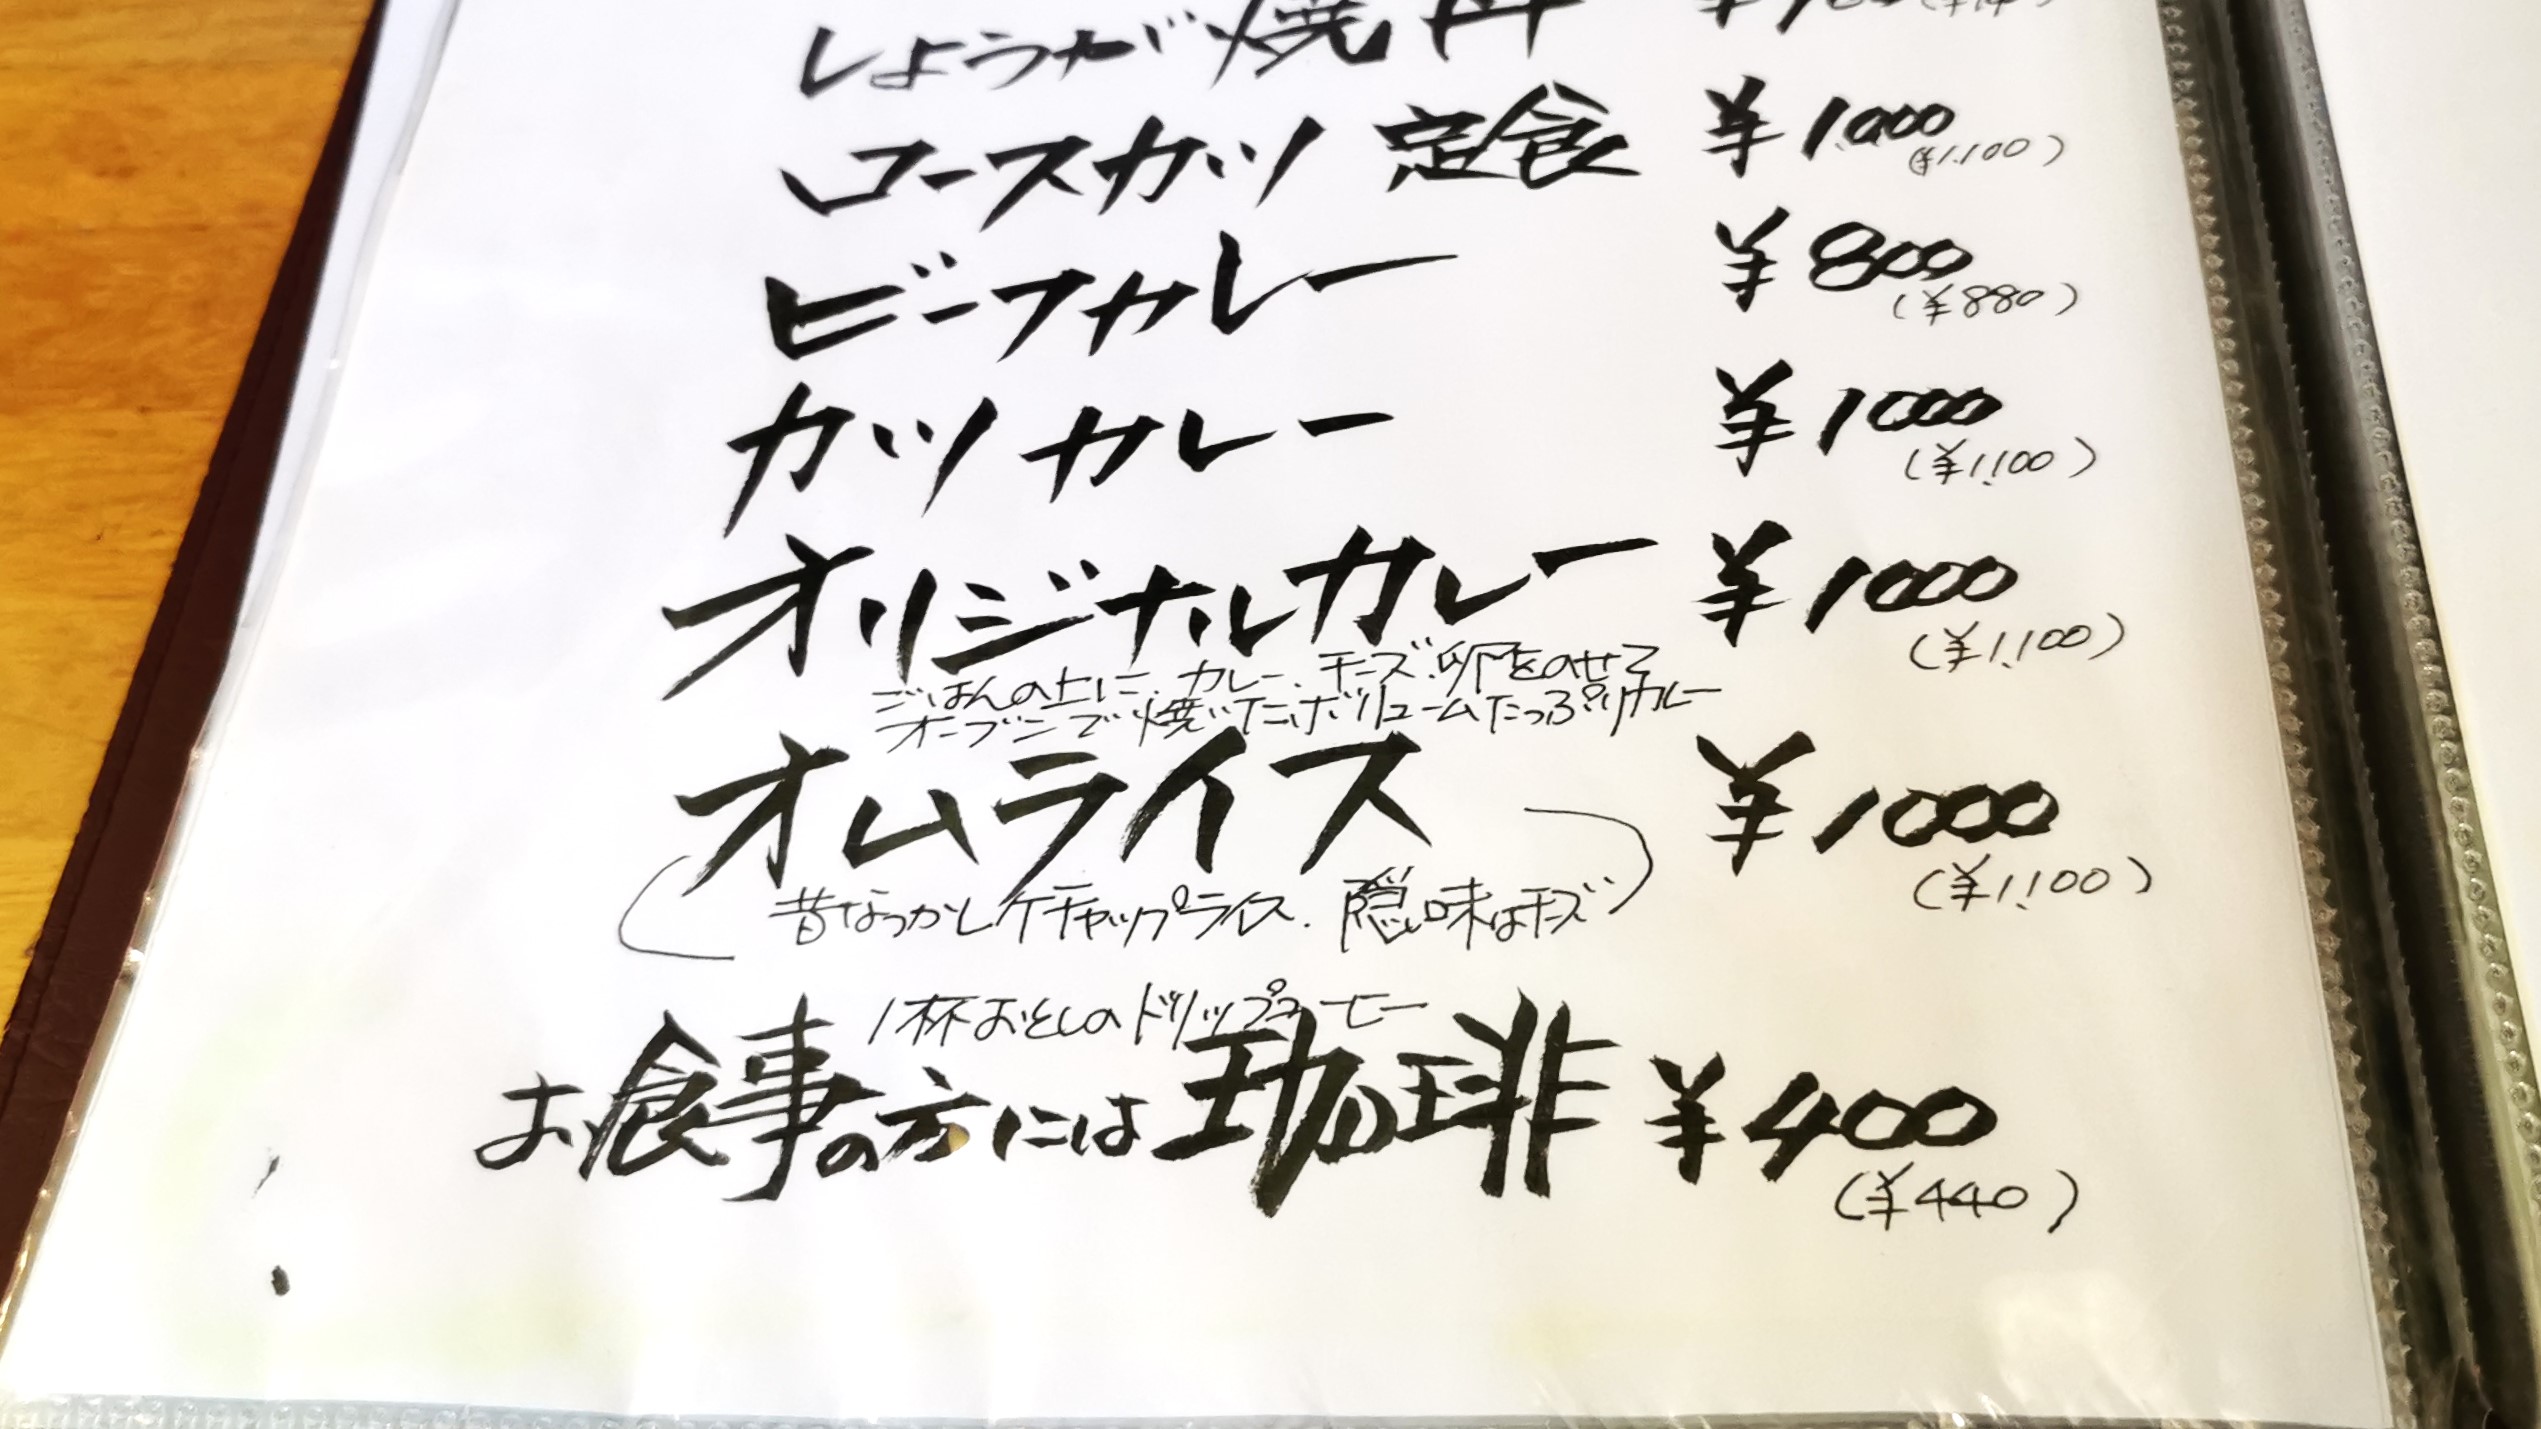 しょうが焼丼
ロースカツ 定食 ¥1,000
(¥1,100)
ビーフカレー ¥800
(¥880)
カツカレー ¥1000
(¥1,100)
オリジナルカレー ¥1000
(¥1,100)
ごはんの上に、カレー、チーズ、卵をのせて
オーブンで焼いたボリュームたっぷりカレー
オムライス ¥1000
(¥1,100)
昔なつかしケチャップライス、隠し味はチーズ
1杯おとしのドリップコーヒー
お食事の方には珈琲 ¥400
(¥440)